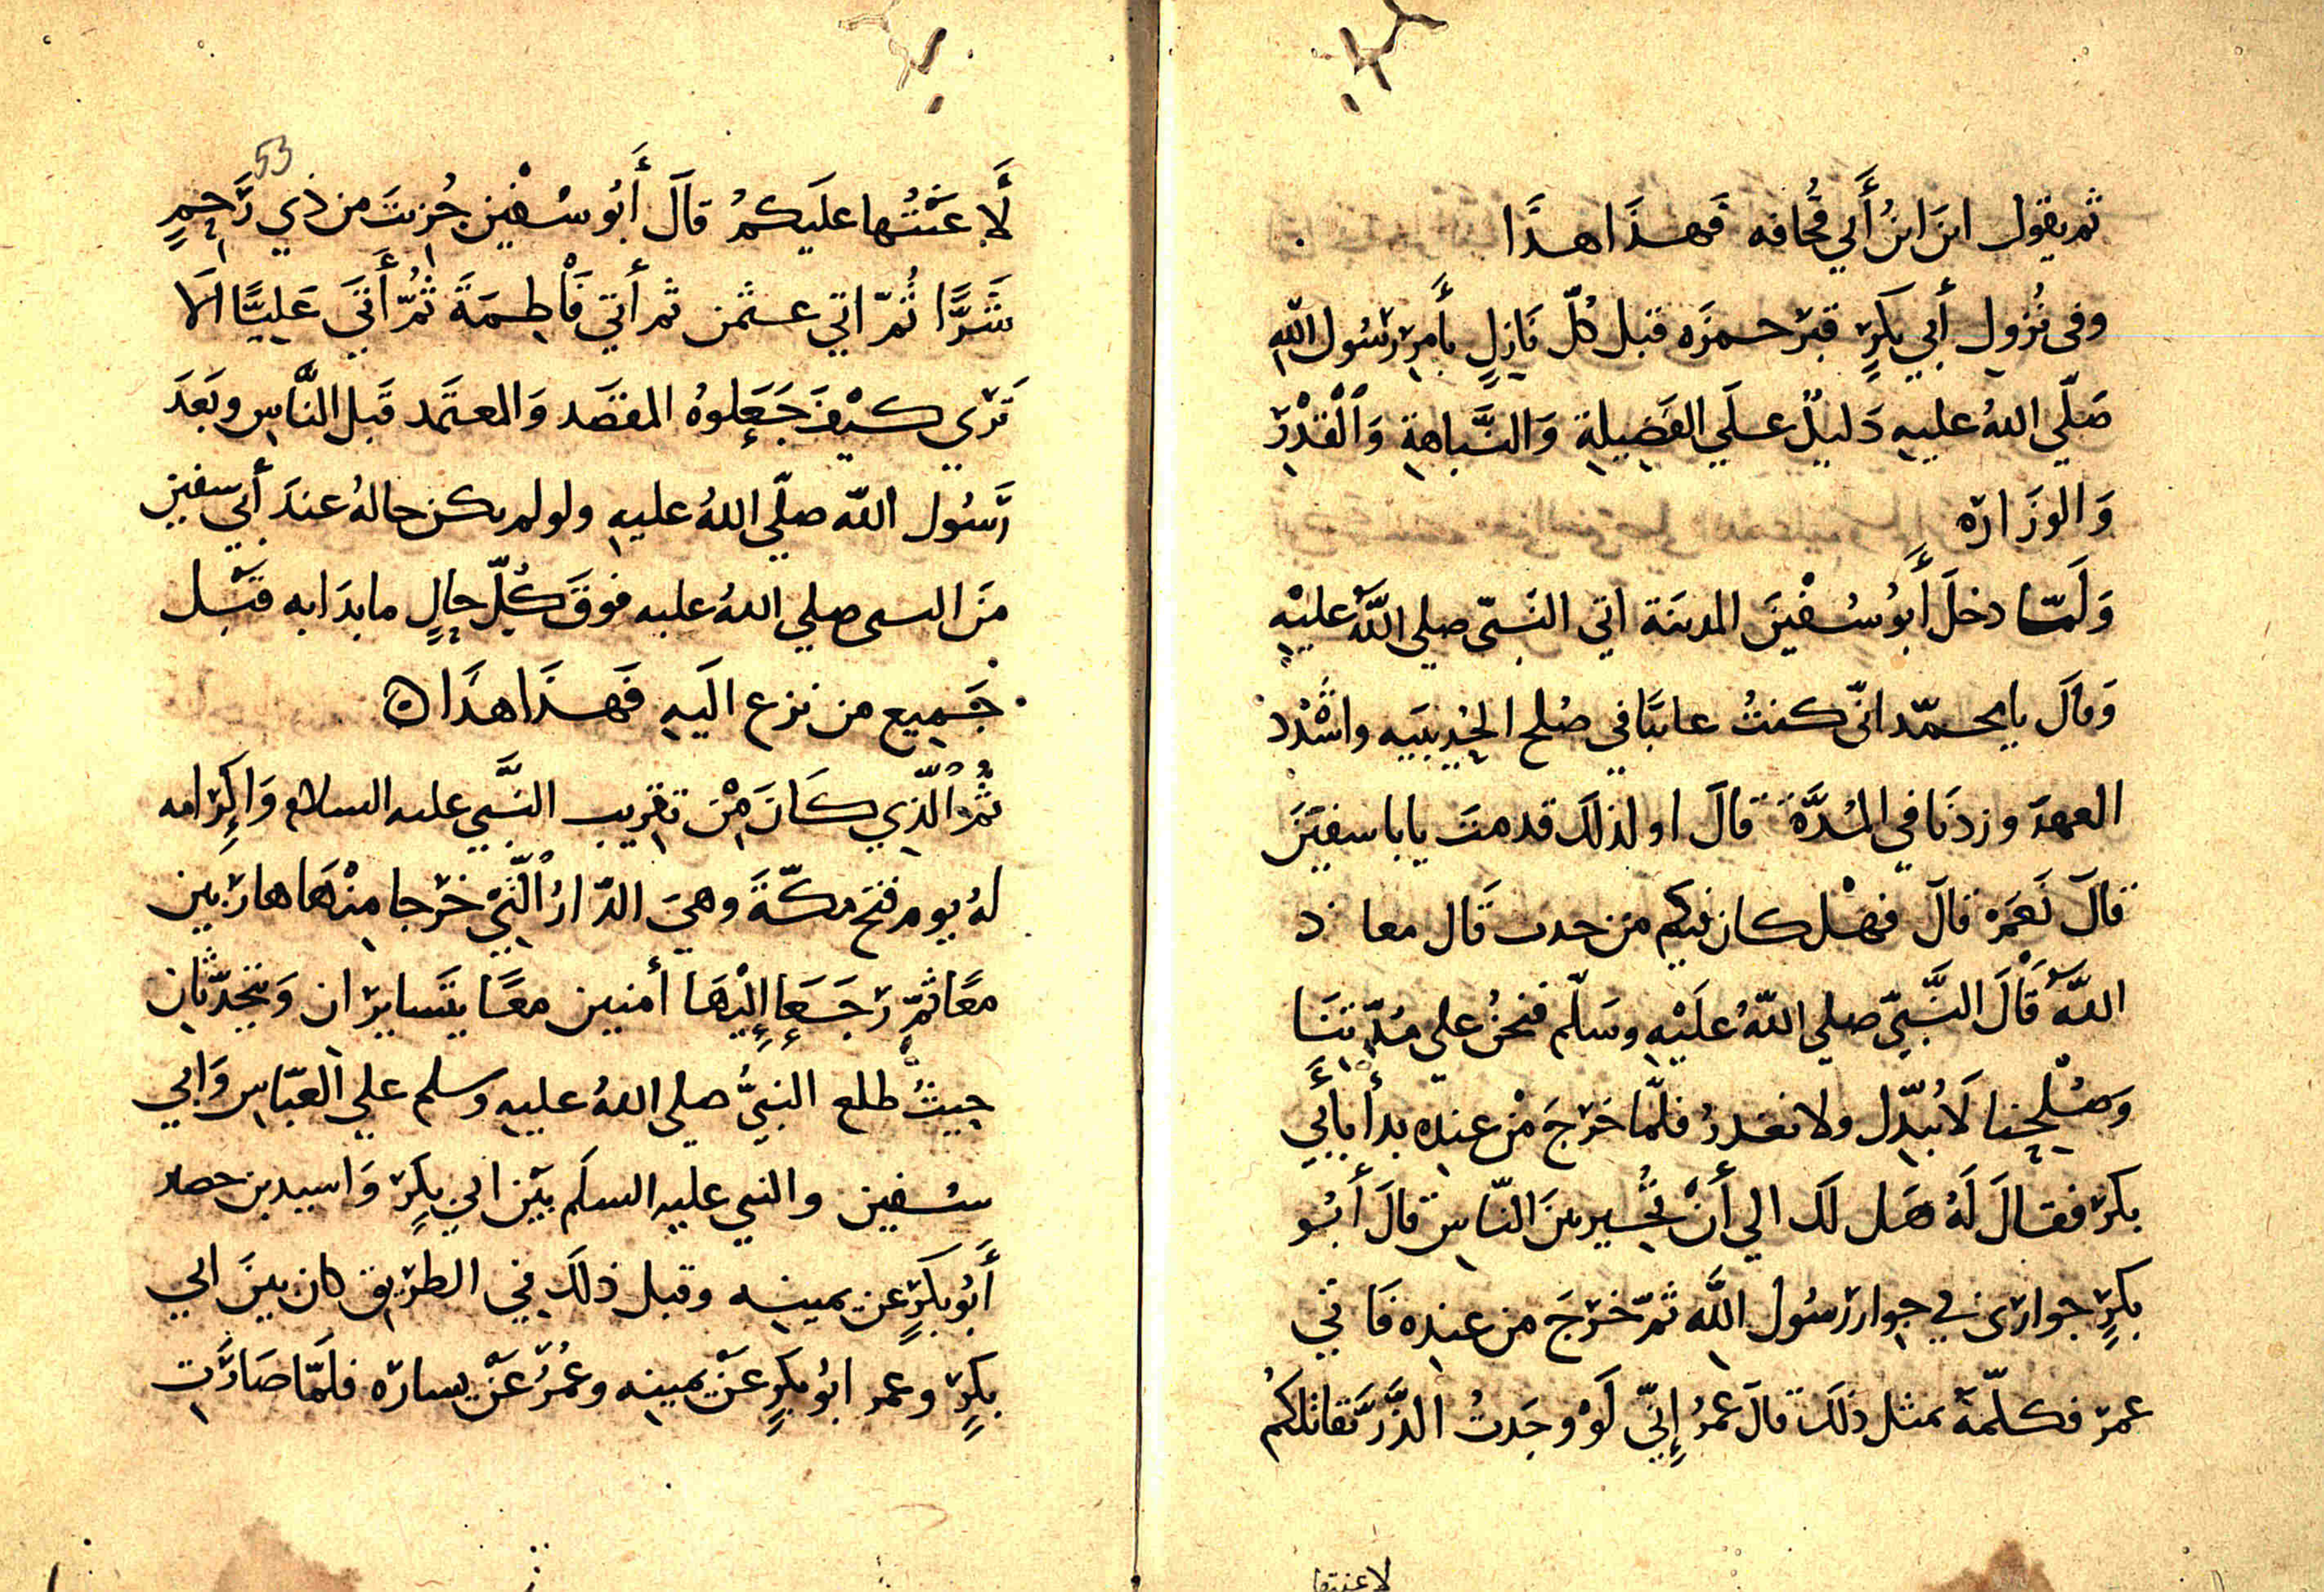 ثم يقول اين ابنُ أَبي قُحافه فَهـذَا هـذَا
وفى نُزولِ أبي بكرٍ قبر حمزَه قبل كُلّ نَازلٍ بأمر رسُول اللّه
صَلّي اللهُ عليهِ دَليلٌ علَي الفَضِيلةِ وَالنَّباهةِ وَالْقدْرِ
وَالوَزَاره
وَلَمّا دخلَ أَبُو سُفْينَ المدينَة اتي النَبيّ صلي اللَّهُ عليْهِ
وَقالَ يا محمّد انّي كنتُ غايبًا في صُلح الحُدَيبيَه واشْدُد
العهدَ وزدنَا في المُدَّةَ قالَ اولذلكَ قدمتَ يا با سفيَنَ
قالَ نَعَمْ قالَ فهل كان فيكم من حدث قَال معاد
اللَّه قَالَ النَّبيّ صلي اللّهُ علَيْهِ وسَلّم فنحنُ علي مُدّتِنَا
وَصُلْحِنا لَا نُبدّل ولا نغدرُ فلمّا خرَجَ مْن عندِه بدأ بأَبي
بكر فقالَ لَهُ هَل لكَ الي أَنْ تُجير بينَ النّاسِ قالَ أَبُو
بكرٍ جوارى في جِوارِ رسُول اللَّه ثمّ خرَجَ من عندِه فَاتي
عمر فكلّمهَ بمثل ذلكَ قالَ عمرُ إِنّي لَوْ وجَدتُ الذَّرَّ تقاتلكمُ
لا عنتها
53
لَأَعَنْتُها علَيكمُ قالَ أَبُو سُفْين جُزيتَ من ذي رَحِمٍ
شَرًّا ثُمّ اتي عثمن ثم أتي فَاطِمَةَ ثُمّ أَتَي عَلِيًّا اَلَا
تَرَي كيْفَ جَعَلوهُ المقصَد وَالمعتمَد قَبل النَّاسِ وبَعدَ
رَسُول اللّه صلّي اللهُ عليهِ ولو لم يكن حالهُ عندَ أبي سفين
منَ النبى صلي اللهُ عليه فوقَ كُلّ حالٍ ما بدَا به قَبْل
جَميعِ من نزع الَيهِ فَهـذَا هـذَا ه
ثُمَّ الّذي كانَ مْن تقريبِ النَّبي عليه السلام وَاكِرامه
لهُ يوم فتح مكّةَ وهيَ الدّارُ الّتيْ خرَجا مِنْهَا هاربَين
معًا ثمّ رَجَعَا إِلَيْهَا أمنين معًا يتَسايرَان وَيَتحدّثان
حيثُ طلع النبيُّ صلي اللهُ عليهِ وسلم علي العَبّاسِ وَابي
سُفين والنبي عليهِ السلَم بيْن ابي بكرٍ وَاسيد بن حصير
أَبُو بكرٍ عن يمينِه وقبل ذلكَ في الطرِيق كان بينَ ابي
بكرٍ وعمر ابُو بكرٍ عنْ يمينِه وعُمرُ عَنْ يساره فلَمّا صَارَت